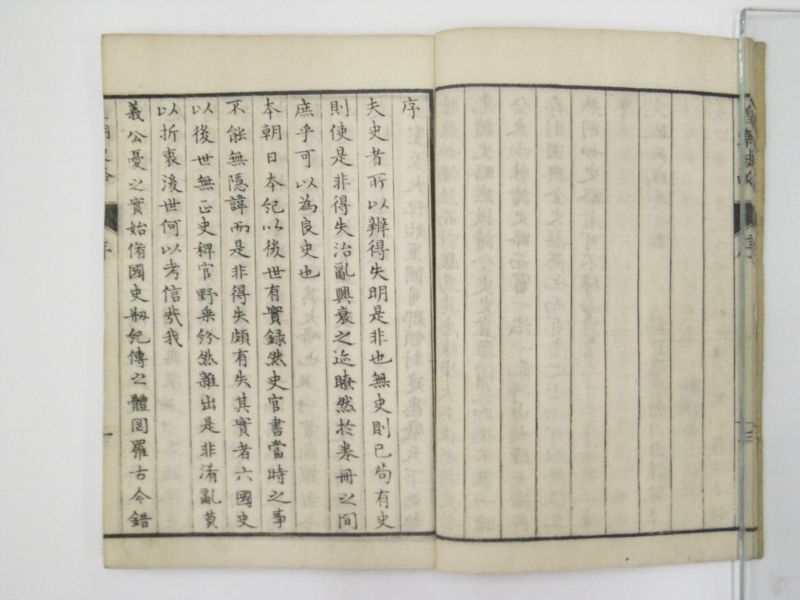 序
夫史者所以辨得失明是非也無史則已苟有史
則使是非得失治亂興衰之迹瞭然於卷冊之間
庶乎可以為良史也
本朝日本紀以後世有實録然史官書當時之事
不能無隠諱而是非得失頗有失其實者六國史
以後世無正史稗官野乗紛然雜出是非淆亂莫
以折衷後世何以考信哉我
義公憂之實始脩國史剏紀傳之體罔羅古今錯